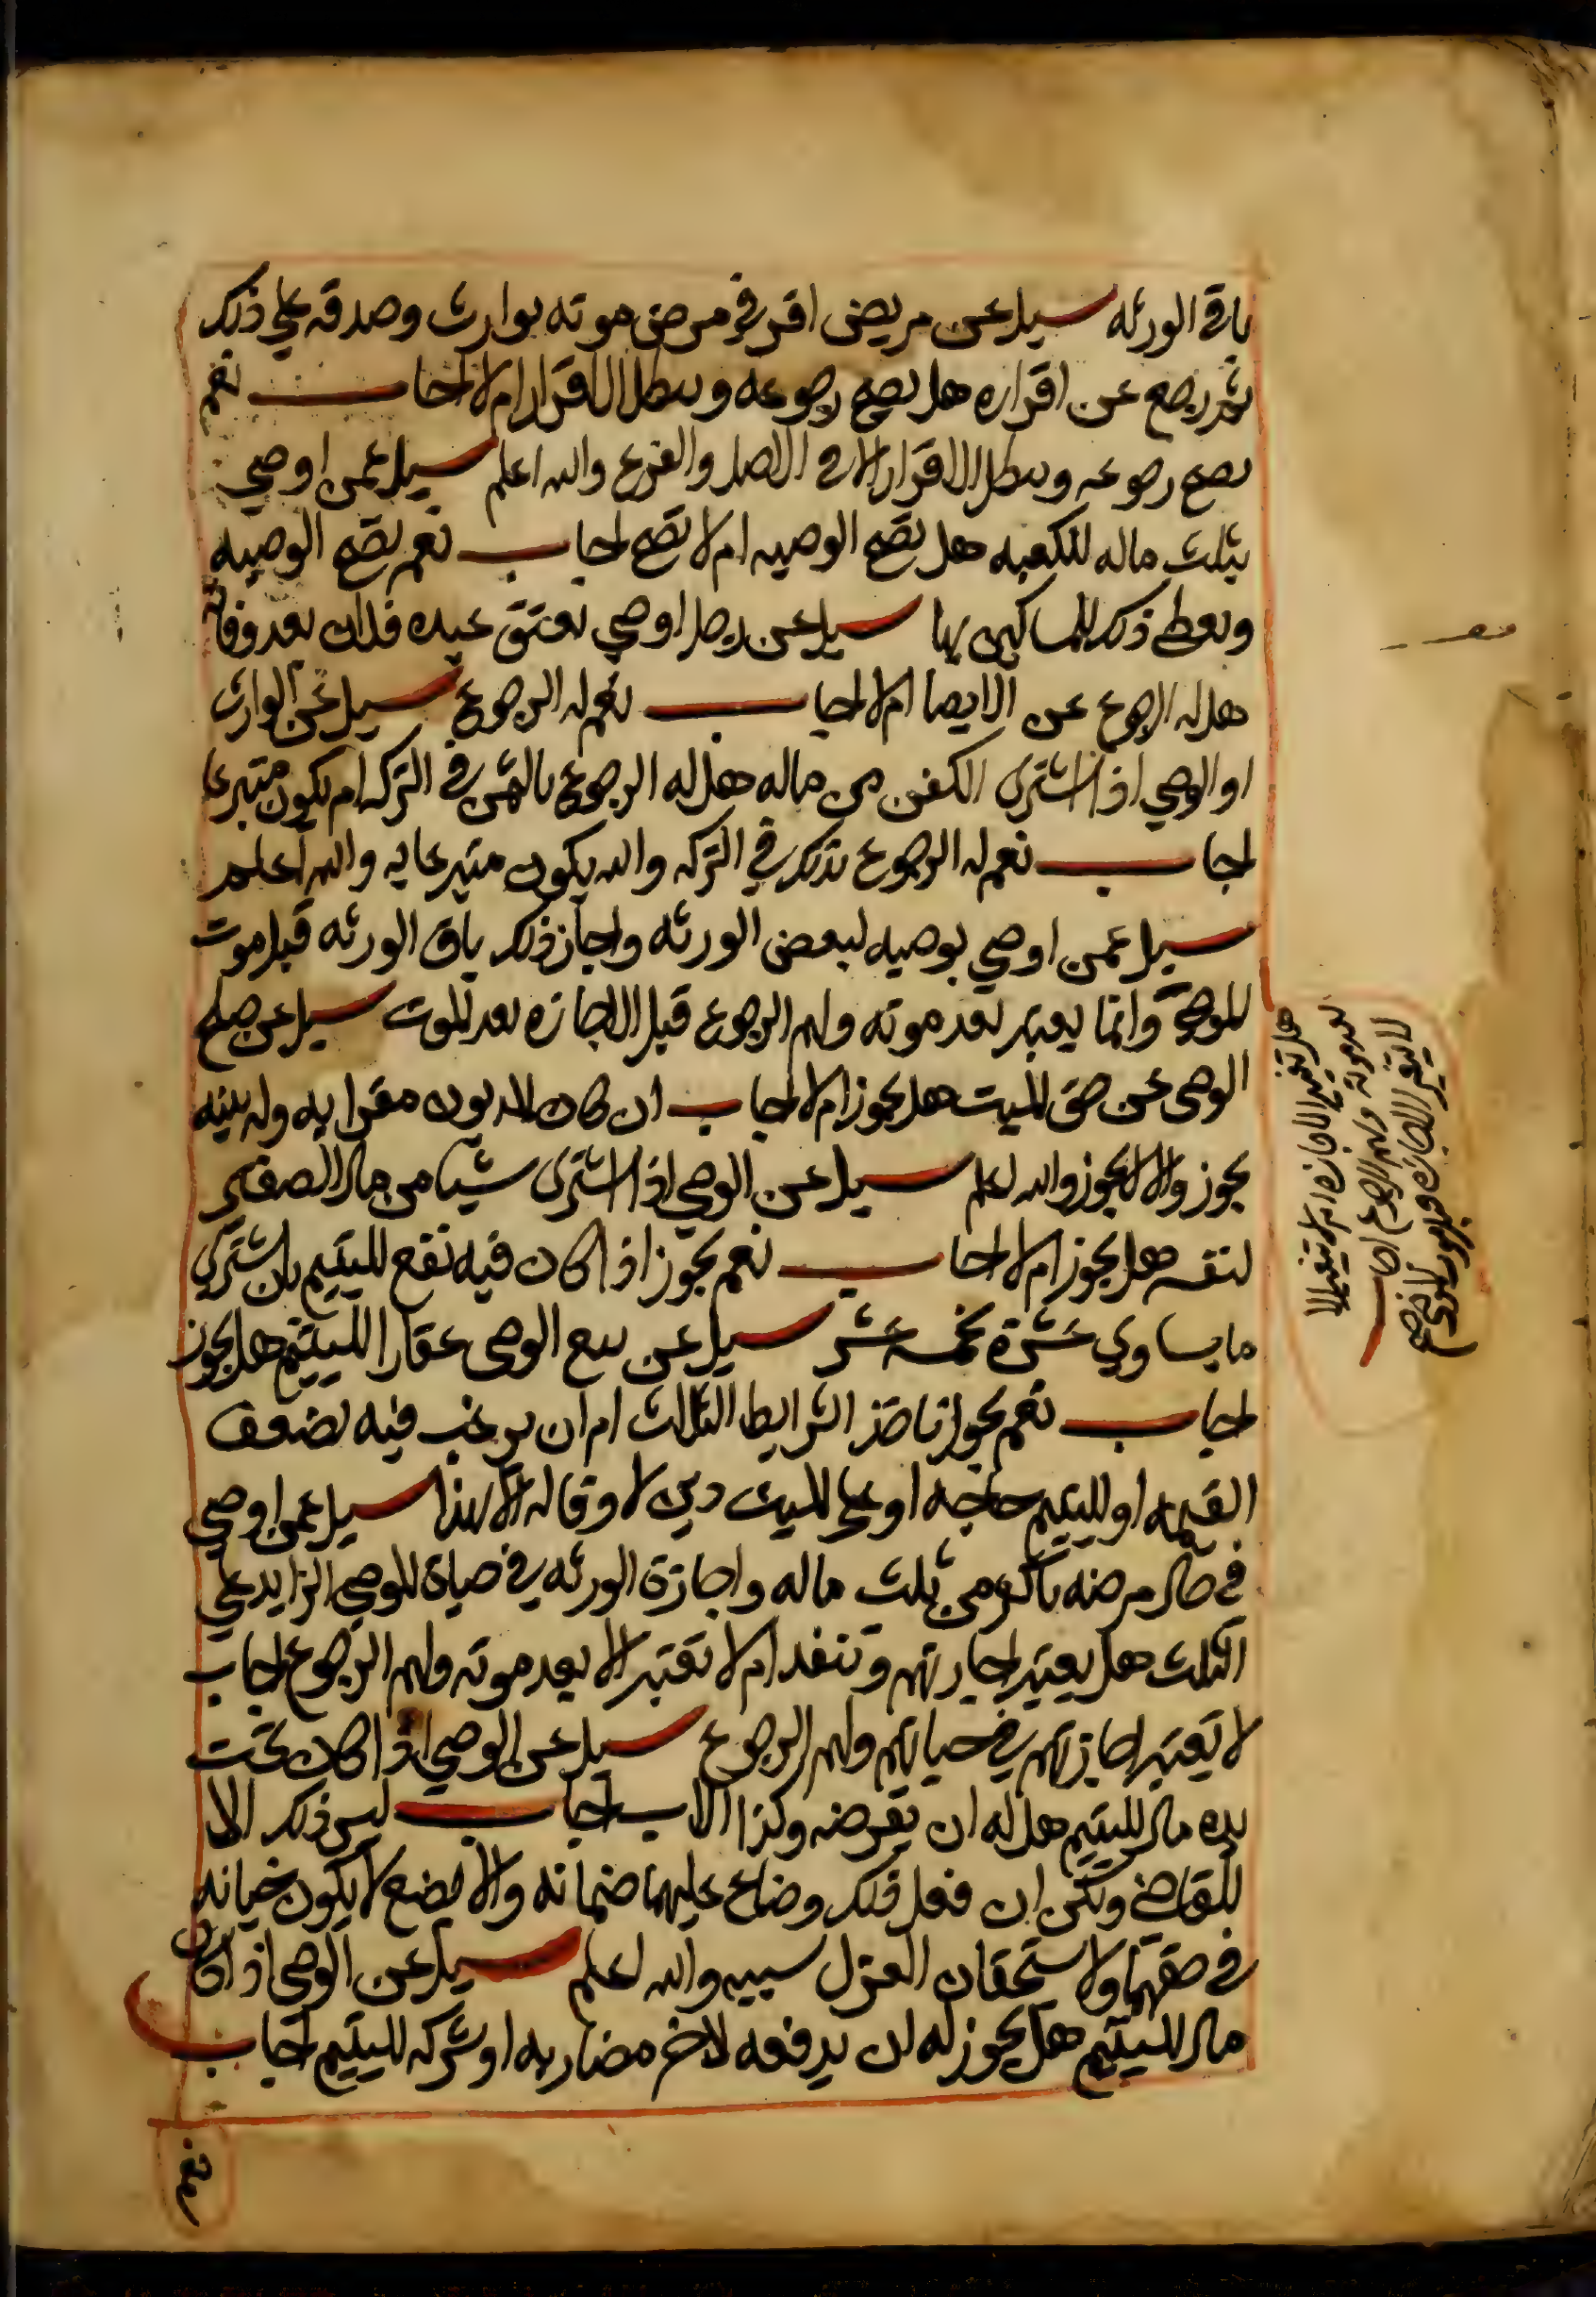 باقي الورثه سيل عن مريض اقر في مرض موته بوارث وصدقه علي ذلك
ثم رجع عن اقراره هل يصح رجوعه ويبطل الاقرار ام لا اجاب نعم
يصح رجوعه ويبطل الاقرار الا في الاصل والفرع والله اعلم سيل عمن اوصي
بثلث ماله للكعبه هل تصح الوصيه ام لا تصح اجاب نعم تصح الوصيه
ويعطي ذلك للمساكين بها سيل عن رجل اوصي بعتق عبده فلان بعد وفاته
هل له الرجوع عن الايصا ام لا اجاب نعم له الرجوع سيل عن الوارث
او الوصي اذا اشترى الكفن من ماله هل له الرجوع بالثمن في التركه ام يكون متبرعا
اجاب نعم له الرجوع بذلك في التركه ولا يكون متبرعا به والله اعلم
سيل عمن اوصي بوصيه لبعض الورثه واجاز ذلك باقي الورثه قبل موت
الموصي وانما يعتبر بعد موته ولهم الرجوع قبل الاجازه بعد الموت سيل عن صلح
الوصى عن حق الميت هل يجوز ام لا اجاب ان كان المديون مقرا به وله بينه
يجوز والا لا يجوز والله اعلم سيل عن الوصي اذا اشترى شيا من مال الصغير
لنفسه هل يجوز ام لا اجاب نعم يجوز اذا كان فيه نفع لليتيم بان يشتري
ما يساوي عشرة بخمسة عشر سيل عن بيع الوصى عقار اليتيم هل يجوز
اجاب نعم يجوز باحد الشرايط الثلاث ام ان يرغب فيه بضعف
القيمه او لليتيم حاجه او على الميت دين لا وفا له الا بهذا سيل عمن اوصي
في حال مرضه باكثر من ثلث ماله واجازة الورثه في حياة الموصي الزايد علي
الثلث هل يعتبر اجازتهم وتنفد ام لا تعتبر الا بعد موته ولهم الرجوع اجاب
لا يعتبر اجازتهم في حياتهم ولهم الرجوع سيل عن الوصي اذا كان تحت
يده مال لليتيم هل له ان يقرضه وكذا الاب اجاب ليس ذلك الا
للقاضي ولكن ان فعل ذلك وضاع عليهما ضمانه والا يضع لا يكون خيانه
في حقهما ولا استحقان العزل سببه والله اعلم سيل عن الوصي اذا كان
مال لليتيم هل يجوز له ان يدفعه لاخر مضاربه او شركه لليتيم اجاب
نعم
هل تعتبر الاجازه ام لا تعتبر الا
بعد موته ولهم الرجوع اجاب
لا يعتبر الاجازه قبل موت الموصي